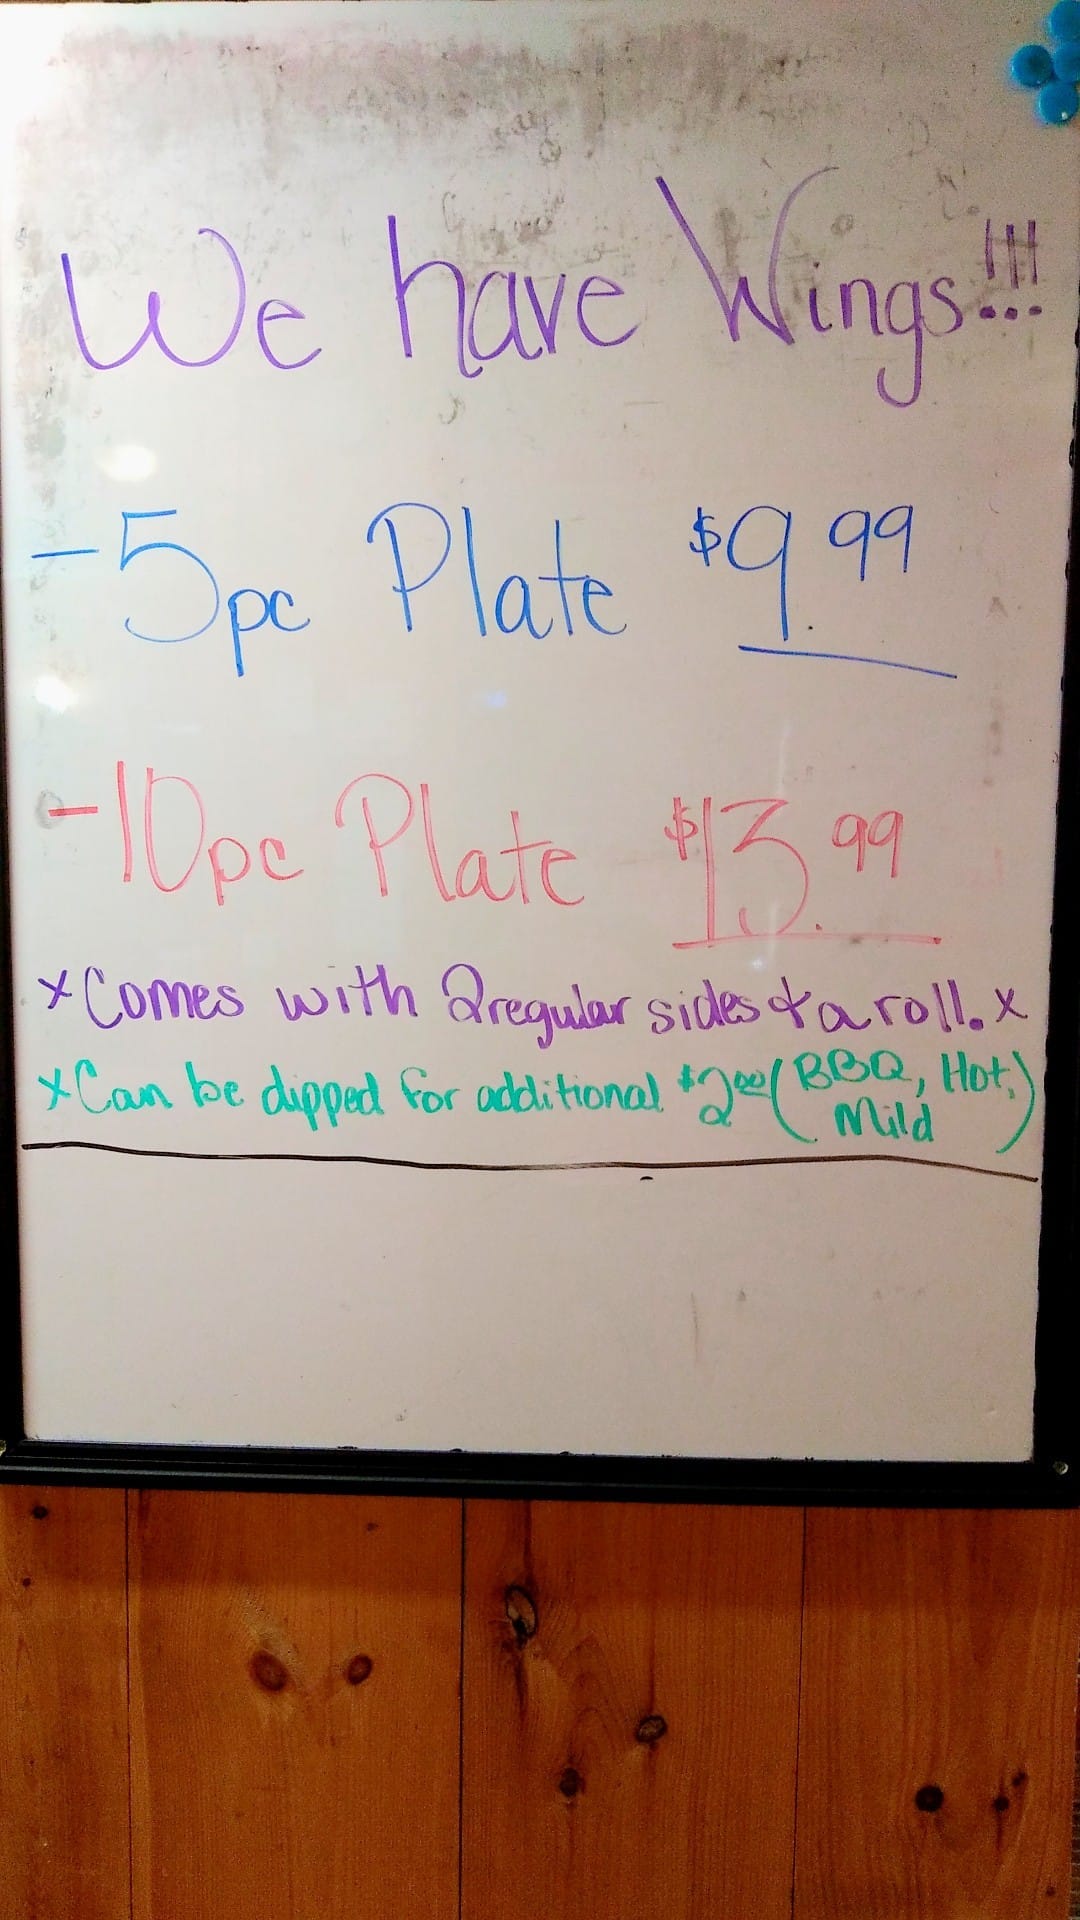 We have Wings!!!
- 5pc Plate $9.99
- 10pc Plate $13.99
x Comes with 2 regular sides & a roll. x
x Can be dipped for additional $2.00 (BBQ, Hot,
Mild)